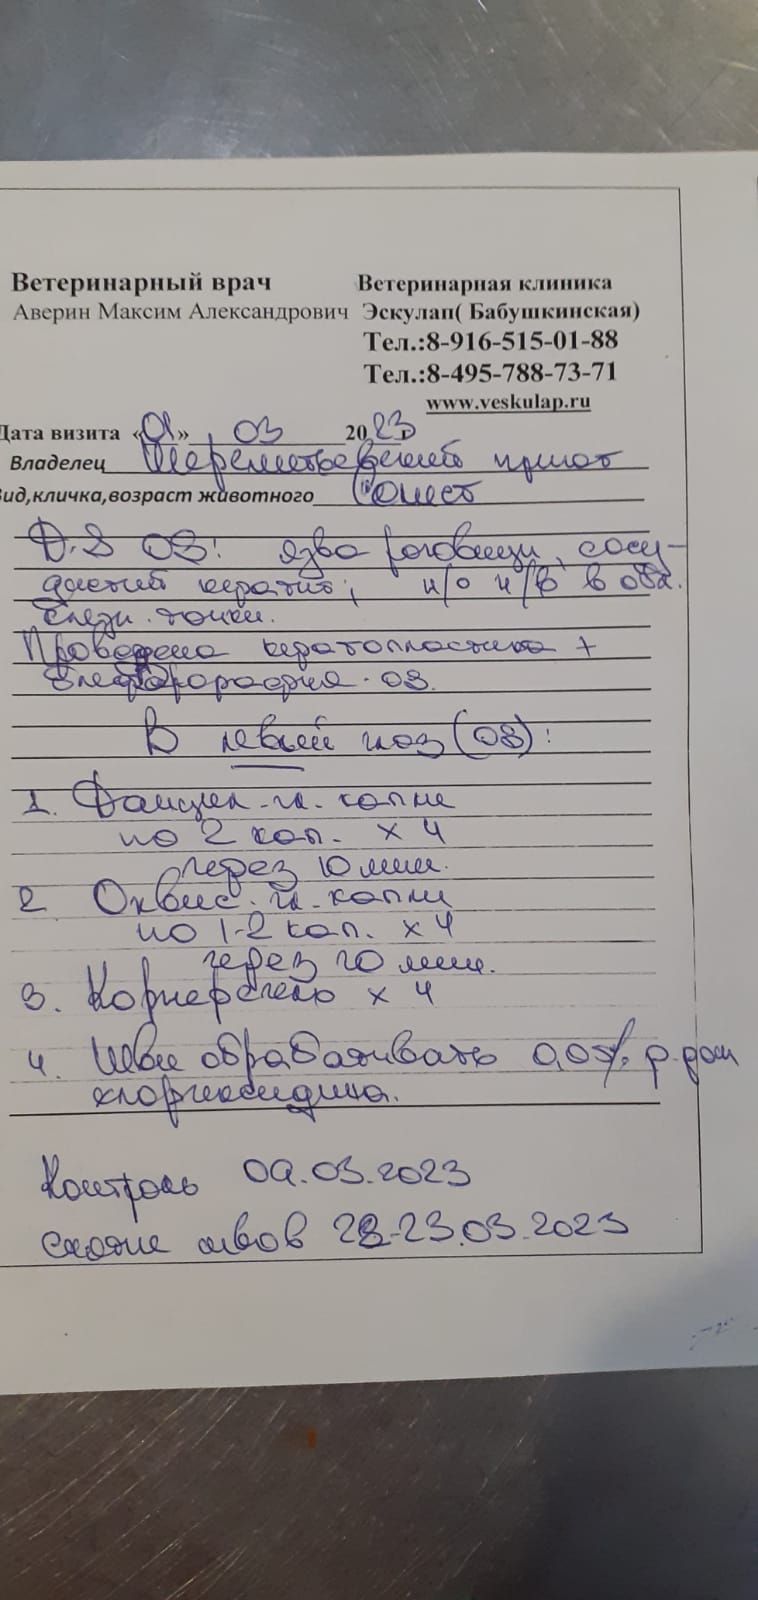 Ветеринарный врач Ветеринарная клиника
Аверин Максим Александрович Эскулап( Бабушкинская)
Тел.:8-916-515-01-88
Тел.:8-495-788-73-71
www.veskulap.ru
Дата визита « » 03 2023
Владелец приют
Вид,кличка,возраст животного
D.S OS: язва роговицы, сосу-
дистый кератит; н/о н/в в обл.
слезн. точки.
Проведена кератопластика +
блефарорафия OS.
В левый глаз (OS):
1. Данцил гл. капли
по 2 кап. х 4
через 10 мин.
2 Оквис гл. капли
по 1-2 кап. х 4
через 10 мин.
3. Корнерегель х 4
4. Швы обрабатывать 0,05% р-ром
хлоргексидина.
Контроль 09.03.2023
Снятие швов 22-23.03.2023